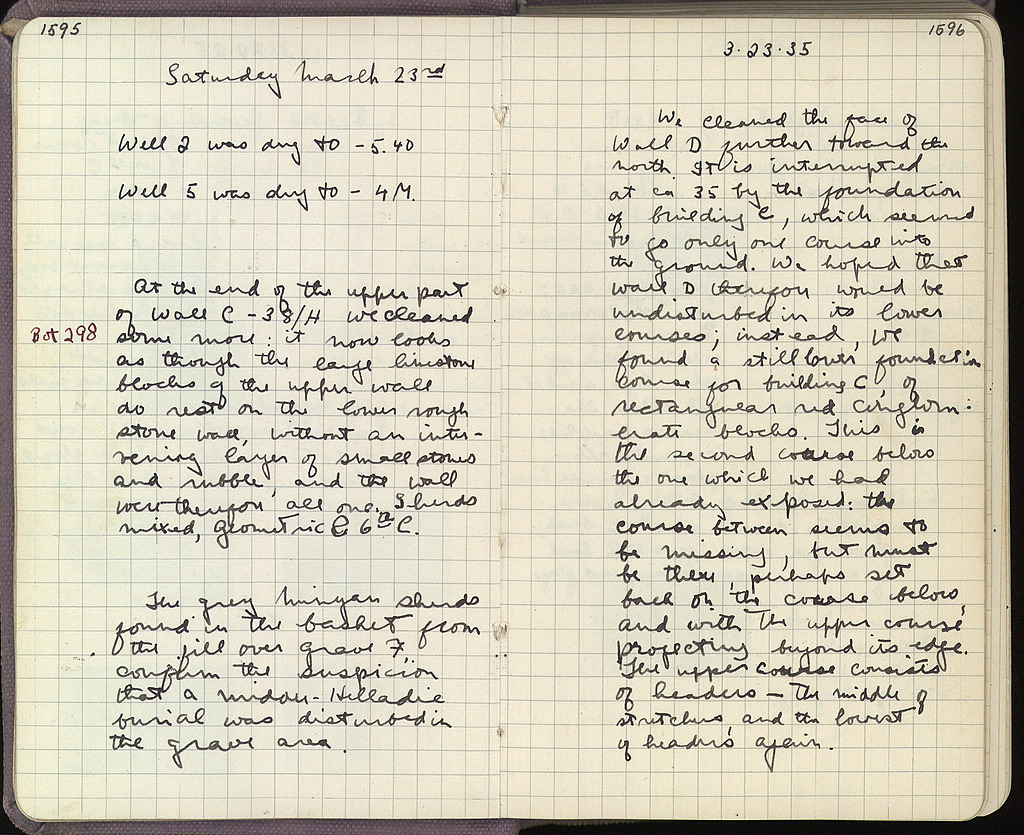 1595
Saturday March 23rd
Well 2 was dug to - 5.40
Well 5 was dug to - 4 M.
At the end of the upper part
of Wall C - 38/H we cleaned
Bot 298
some more: it now looks
as though the large limestone
blocks of the upper wall
do rest on the lower rough
stone wall, without an inter-
vening layer of small stones
and rubble, and the wall
were therefore all one. Sherds
mixed, Geometric & 6th C.
The grey Minyan sherds
found in the basket from
the fill over grave 7,
confirm the suspicion
that a middle-Helladic
burial was disturbed in
the grave area.
1596
3.23.35
We cleaned the face of
Wall D further toward the
north. It is interrupted
at ca 35 by the foundation
of building C, which seemed
to go only one course into
the ground. We hoped that
wall D therefore would be
undisturbed in its lower
courses; instead, we
found a still lower foundation
course for building C, of
rectangular red conglom:
erate blocks. This is
the second course below
the one which we had
already exposed: the
course between seems to
be missing, but must
be there, perhaps set
back on the course below,
and with the upper course
projecting beyond its edge.
The upper course consists
of headers — the middle of
stretchers, and the lowest
of headers again.